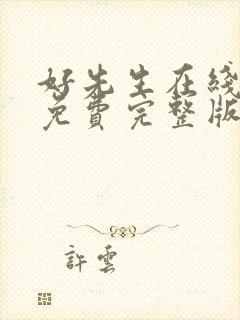 好先生在线
免费完整版
許雲